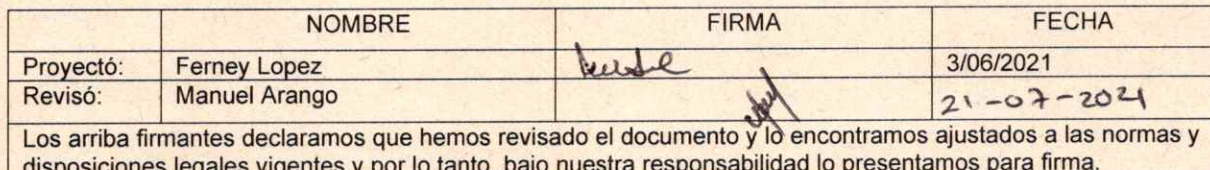 NOMBRE FIRMA FECHA
Proyectó: Ferney Lopez 3/06/2021
Revisó: Manuel Arango 21-07-2021
Los arriba firmantes declaramos que hemos revisado el documento y lo encontramos ajustados a las normas y
disposiciones legales vigentes y por lo tanto, bajo nuestra responsabilidad lo presentamos para firma.